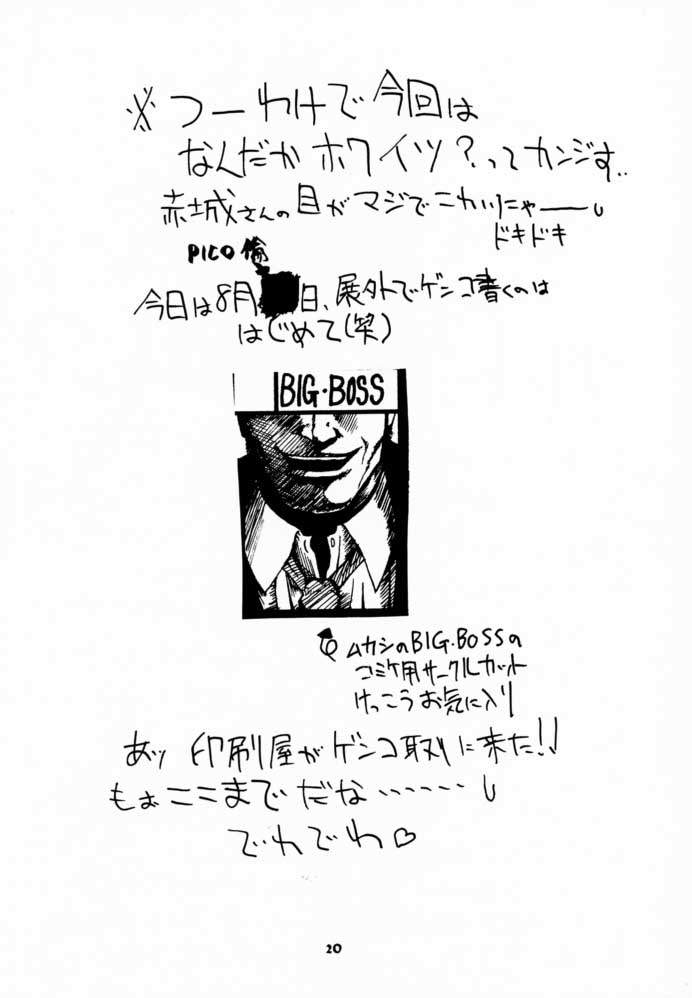 ※つーわけで今回は
なんだかホワイツ？ってカンジす..
赤城さんの目がマジでこわいにゃーー
ドキドキ
PICO倫
今日は8月 日、展外でゲンコ書くのは
はじめて(笑)
BIG・BOSS
ムカシのBIG・BOSSの
コミケ用サークルカット
けっこうお気に入り
あッ 印刷屋がゲンコ取りに来た!!
もぉここまでだな……
でわでわ♡
20